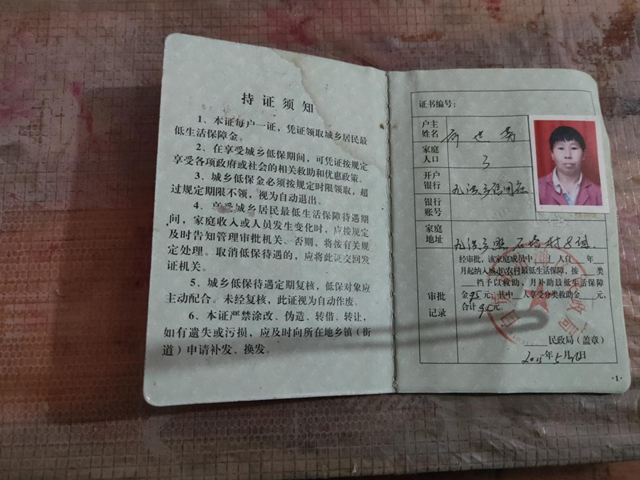 持证须知
1、本证每户一证，凭证领取城乡居民最
低生活保障金。
2、在享受城乡低保期间，可凭证按规定
享受各项政府或社会的相关救助和优惠政策。
3、城乡低保金必须按规定时限领取，超
过规定期限不领，视为自动退出。
4、享受城乡居民最低生活保障待遇期
间，家庭收入或人员发生变化时，应按规定
及时告知管理审批机关。否则，将按有关规
定处理。取消低保待遇的，应将此证交回发
证机关。
5、城乡低保待遇定期复核，低保对象应
主动配合。未经复核，此证视为自动作废。
6、本证严禁涂改、伪造、转借、转让，
如有遗失或污损，应及时向所在地乡镇（街
道）申请补发、换发。
证书编号：
户主
姓名
家庭
人口
3
开户
银行
银行
账号
家庭
地址
经审批，该家庭成员中 1 人自 年
月起纳入城市农村最低生活保障，按 类
档予以救助，月补助最低生活保障
金95元；其中 人享受分类救助金 元，
合计95元。
审批
记录
民政局（盖章）
·1·